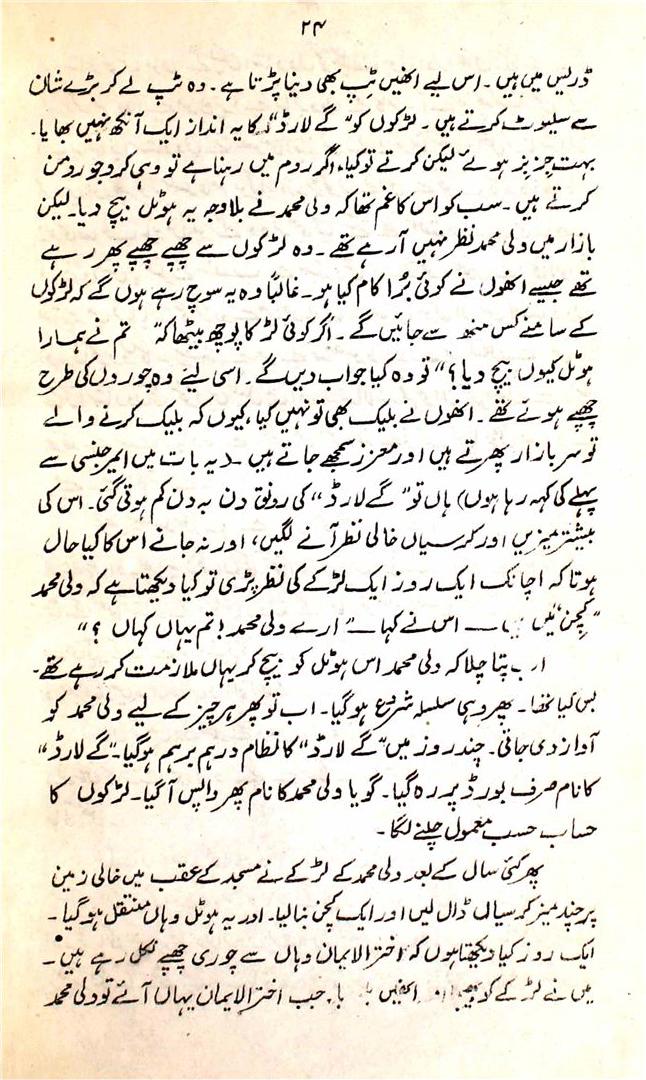 ۲۴
ڈریس میں ہیں۔ اس لیے انھیں ٹپ بھی دینا پڑتا ہے۔ وہ ٹپ لے کر بڑے شان
سے سلیوٹ کرتے ہیں۔ لڑکوں کو "گے لارڈ" کا یہ انداز ایک آنکھ نہیں بھایا۔
بہت جز بز ہوئے لیکن کرتے تو کیا، اگر روم میں رہنا ہے تو وہی کرو جو رومن
کرتے ہیں۔ سب کو اس کا غم تھا کہ ولی محمد نے بلاوجہ یہ ہوٹل بیچ دیا۔ لیکن
بازار میں ولی محمد نظر نہیں آ رہے تھے۔ وہ لڑکوں سے چھپے چھپے پھر رہے
تھے جیسے انھوں نے کوئی بُرا کام کیا ہو۔ غالباً وہ یہ سوچ رہے ہوں گے کہ لڑکوں
کے سامنے کس منھ سے جائیں گے۔ اگر کوئی لڑکا پوچھ بیٹھا کہ" تم نے ہمارا
ہوٹل کیوں بیچ دیا؟" تو وہ کیا جواب دیں گے۔ اسی لیئے وہ چوروں کی طرح
چھپے ہوئے تھے۔ انھوں نے بلیک بھی تو نہیں کیا، کیوں کہ بلیک کرنے والے
تو سر بازار پھرتے ہیں اور معزز سمجھے جاتے ہیں۔ (یہ بات میں ایمرجنسی سے
پہلے کی کہہ رہا ہوں) ہاں تو "گے لارڈ" کی رونق دن بہ دن کم ہوتی گئی۔ اس کی
بیشتر میزیں اور کرسیاں خالی نظر آنے لگیں، اور نہ جانے اس کا کیا حال
ہوتا کہ اچانک ایک روز ایک لڑکے کی نظر پڑی تو کیا دیکھتا ہے کہ ولی محمد
"کچن" میں ہیں — اس نے کہا — "ارے ولی محمد! تم یہاں کہاں؟"
اب پتا چلا کہ ولی محمد اس ہوٹل کو بیچ کر یہاں ملازمت کر رہے تھے۔
بس کیا تھا۔ پھر وہی سلسلہ شروع ہو گیا۔ اب تو پھر ہر چیز کے لیے ولی محمد کو
آواز دی جاتی۔ چند روز میں "گے لارڈ" کا نظام درہم برہم ہو گیا۔ "گے لارڈ"
کا نام صرف بورڈ پر رہ گیا۔ گویا ولی محمد کا نام پھر واپس آ گیا۔ لڑکوں کا
حساب حسب معمول چلنے لگا۔
پھر کئی سال کے بعد ولی محمد کے لڑکے نے مسجد کے عقب میں خالی زمین
پر چند میز کرسیاں ڈال لیں اور ایک کچن بنا لیا۔ اور یہ ہوٹل وہاں منتقل ہو گیا۔
ایک روز کیا دیکھتا ہوں کہ اختر الایمان وہاں سے چوری چھپے نکل رہے ہیں۔
میں نے لڑکے کو انھیں جب اختر الایمان یہاں آئے تو ولی محمد